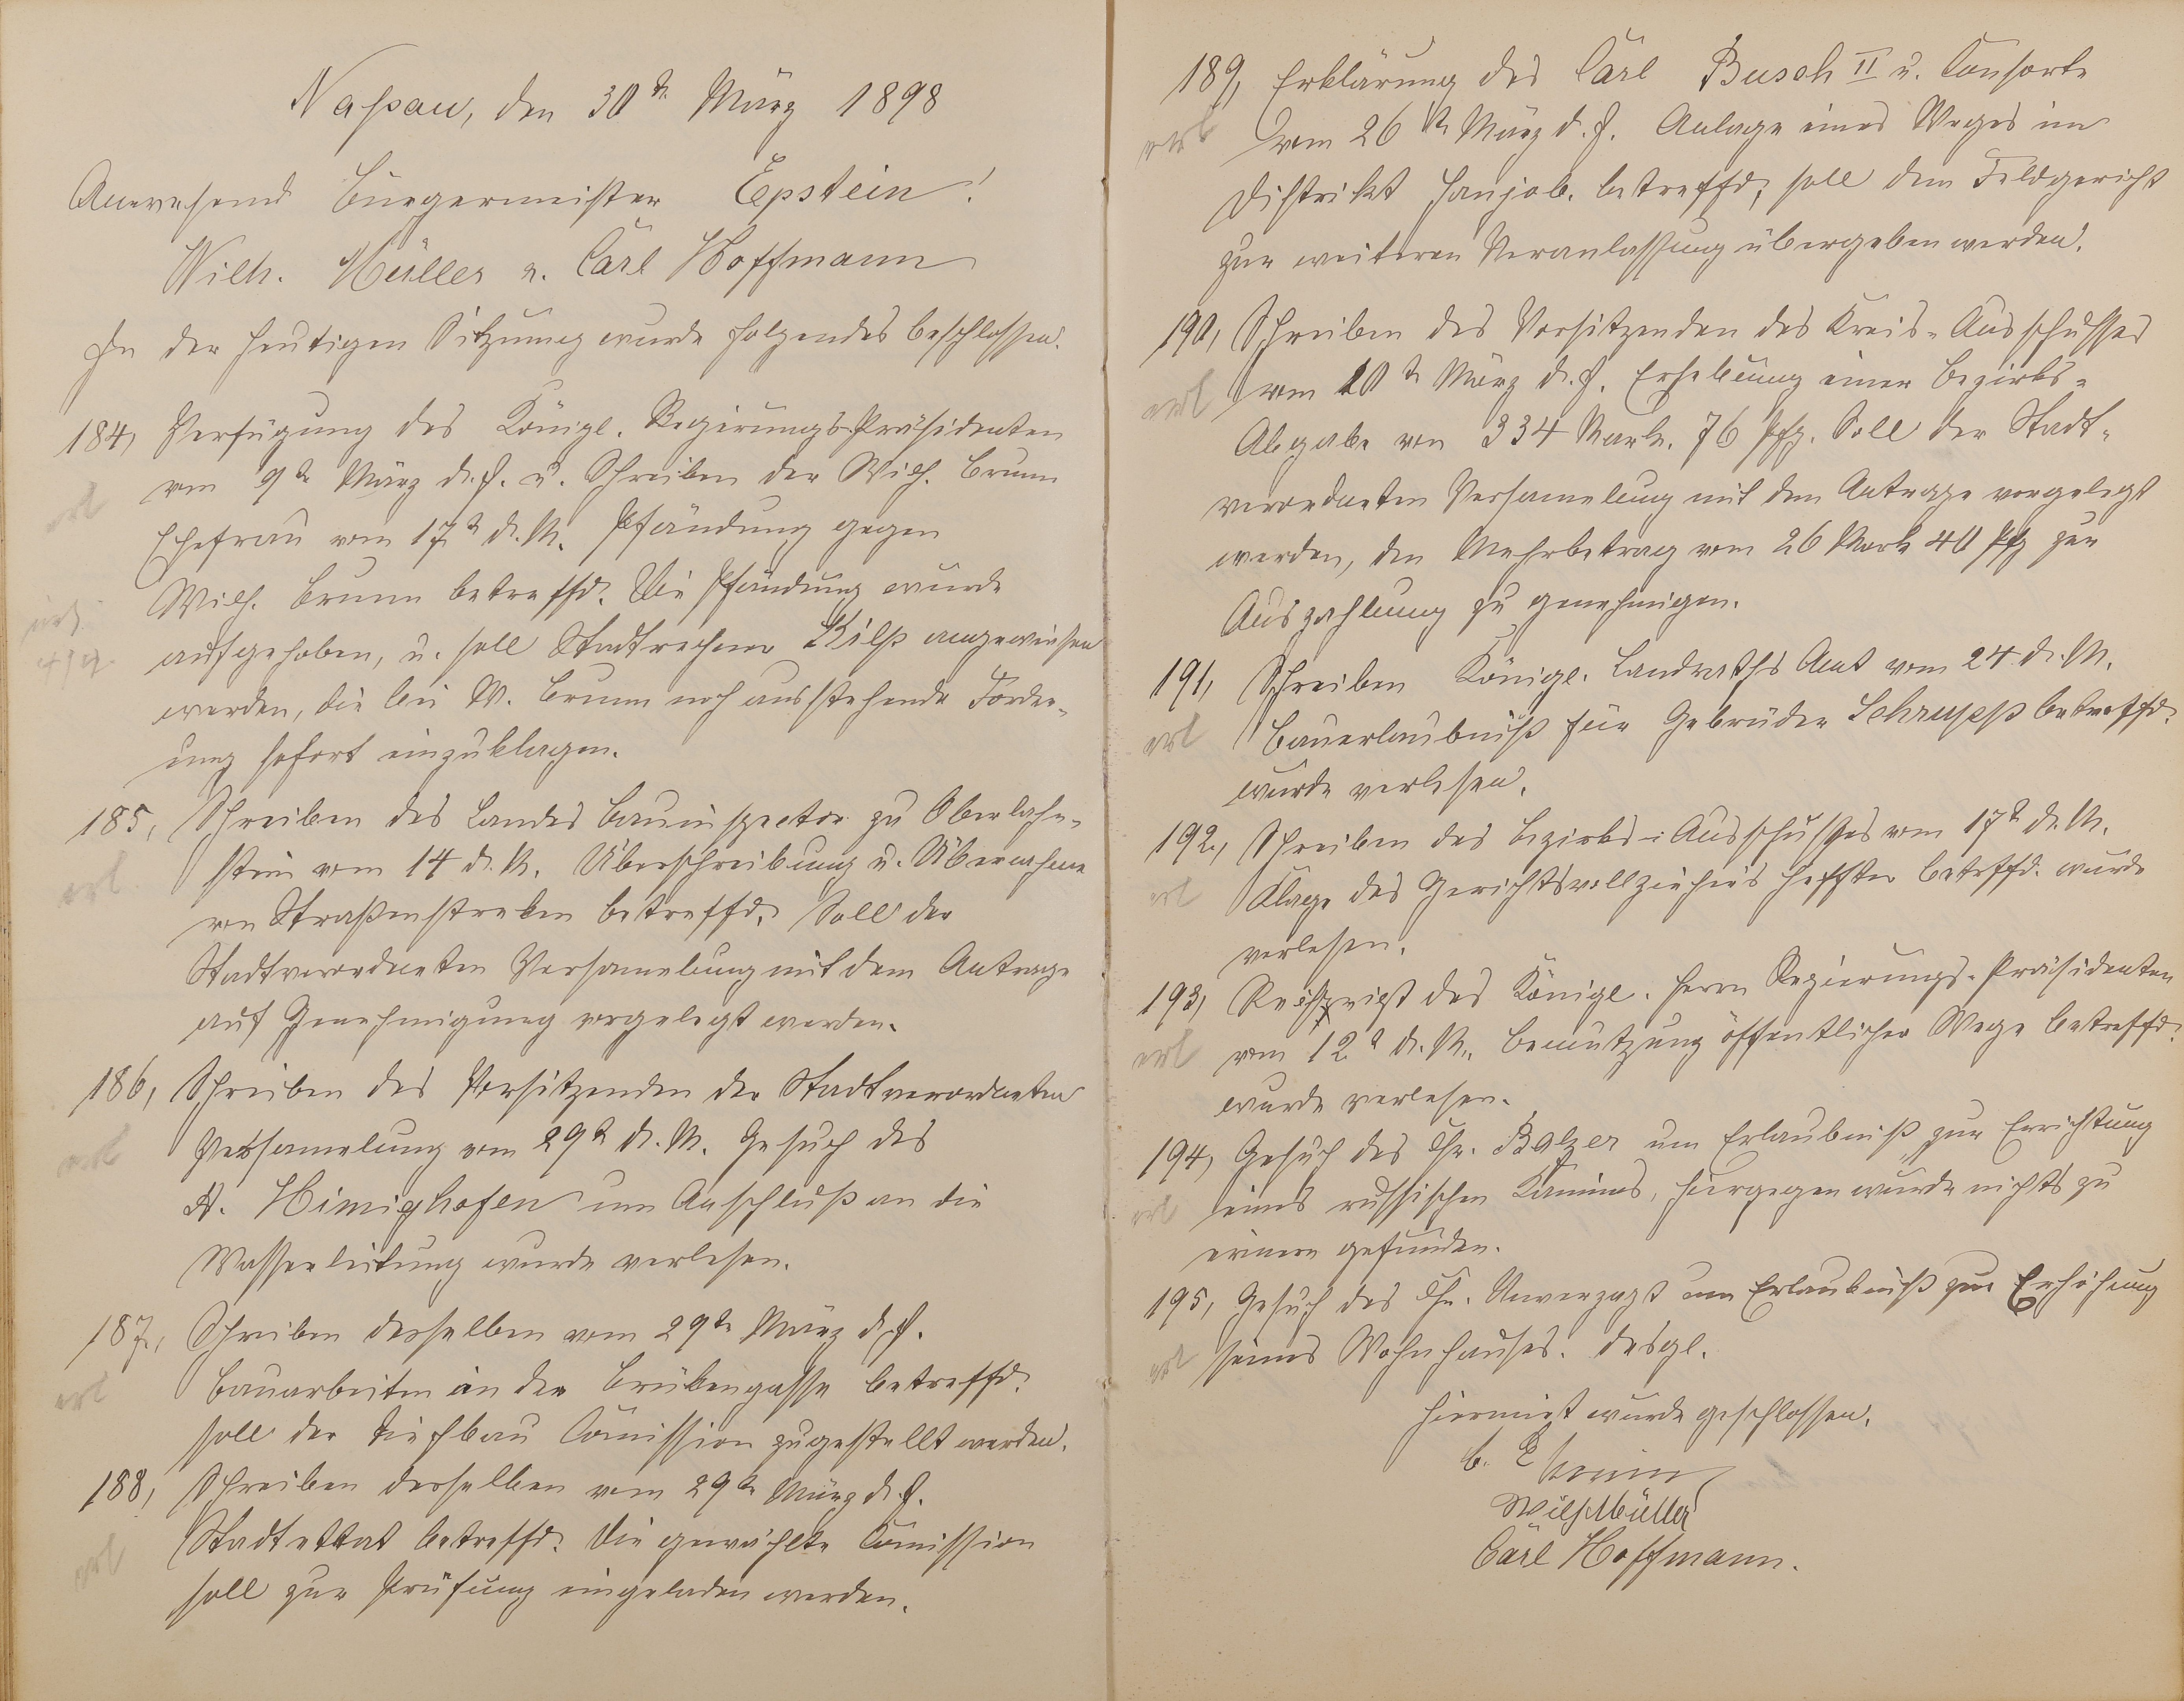 Naßau, den 30te März 1898
Anwesend Bürgermeister Epstein!
Wilh. Müller u. Carl Hoffmann
In der heutigen Sitzung wurde folgendes beschlossen.
184, Verfügung des Königl. Regirungs-Präsidenten
erl vom 9te März d. J. u. Schreiben der Wilh. Brunn
Ehefrau vom 17t d. M. Pfändung gegen
Wilh. Brunn betreffd. Die Pfändung wurde
aufgehoben, u. soll Stadtrechner angewiesen
werden, die bei W. Brunn noch ausstehende Forder-
ung sofort einzuklagen.
185, Schreiben des Landes Bauinspector zu Oberlahn-
erl stein vom 14 d. M. Überschreibung u. Übernahme
von Straßenstreken betreffd. Soll der
Stadtverordneten Versamelung mit dem Antrage
auf Genehmigung vorgelegt werden.
186, Schreiben des Vorsitzenden der Stadtverordneten
erl Versamelung vom 29t d. M. Gesuch des
A. Himighofen um Anschluß an die
Wasserleitung wurde verlesen.
187, Schreiben desselben vom 29te März d. J.
erl Bauarbeiten in der Brükengasse betreffd.
soll der Tiefbau Comission zugestellt werden.
188, Schreiben desselben vom 29te März d. J.
erl Stadtettat betreffd. Die gewählte Comission
soll zur Prüfung eingeladen werden.
189, Erklärung des Carl Busch II u. Consorte
erl vom 26te März d. J. Anlage eines Weges im
Distrikt betreffd, soll dem Feldgericht
zur weiteren Veranlassung übergeben werden.
190, Schreiben des Vorsitzenden des Kreis-Ausschusses
erl vom 20te März d. J. Erhebung einer Bezirks-
Abgabe von 334 Mark. 76 Pfg. Soll der Stadt-
verordneten Versamelung mit dem Antrage vorgelegt
werden, den Mehrbetrag vom 26 Mark 40 Pfg zur
Auszahlung zu genehmigen.
191, Schreiben Königl. Landraths Amt vom 24. d. M.
erl Bauerlaubniß für Gebrüder Schrupp betreffd.
wurde verlesen.
192, Schreiben des Bezirks-Ausschusses vom 17t d. M.
erl Klage des Gerichtsvollziehers betreffd. wurde
verlesen.
193, Reskript des Königl. Herrn Regierungs-Präsidenten
erl vom 12t d. M. Benutzung öffentlicher Wege betreffd.
wurde verlesen.
194, Gesuch des Chr. Balzer um Erlaubniß zur Errichtung
erl eines russischen Kamines, hiergegen wurde nichts zu
erinern gefunden.
195, Gesuch des Chr. Unverzagt um Erlaubniß zur Erhöhung
erl seines Wohnhauses. desgl.
Hiermit wurde geschlossen.
Wilh Müller
Carl Hoffmann.